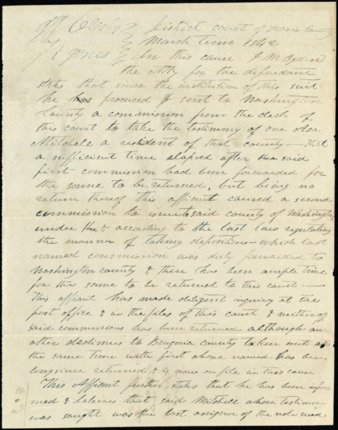 District court of Harris County
vs March term 1842
Jones In this cause J. M. Byrn
the Atty for the defendant
states that since the institution of this suit
he has procured & sent to Washington
County a commission from the clerk of
this court to take the testimony of one
Mitchele a resident of that county — that
a sufficient time elapsed after the said
first commission had been forwarded for
the same to be returned, but being no
return thereof this affiant caused a second
commission to issue to said county of Washington
under the & according to the last law regulating
the manner of taking depositions — which last
named commission was duly forwarded to
Washington county & there has been ample time
for the same to be returned to this court —
This affiant has made diligent inquiry at the
post office & in the files of this court & neither of
said commissions has been returned although an
other dedimus to Brazoria county taken out at
the same time with first above named has been
long since returned & is now on file in this cause
This affiant further states that he has been infor
med & believes that said Mitchell whose testimony
was sought was the last assignor of the note sued